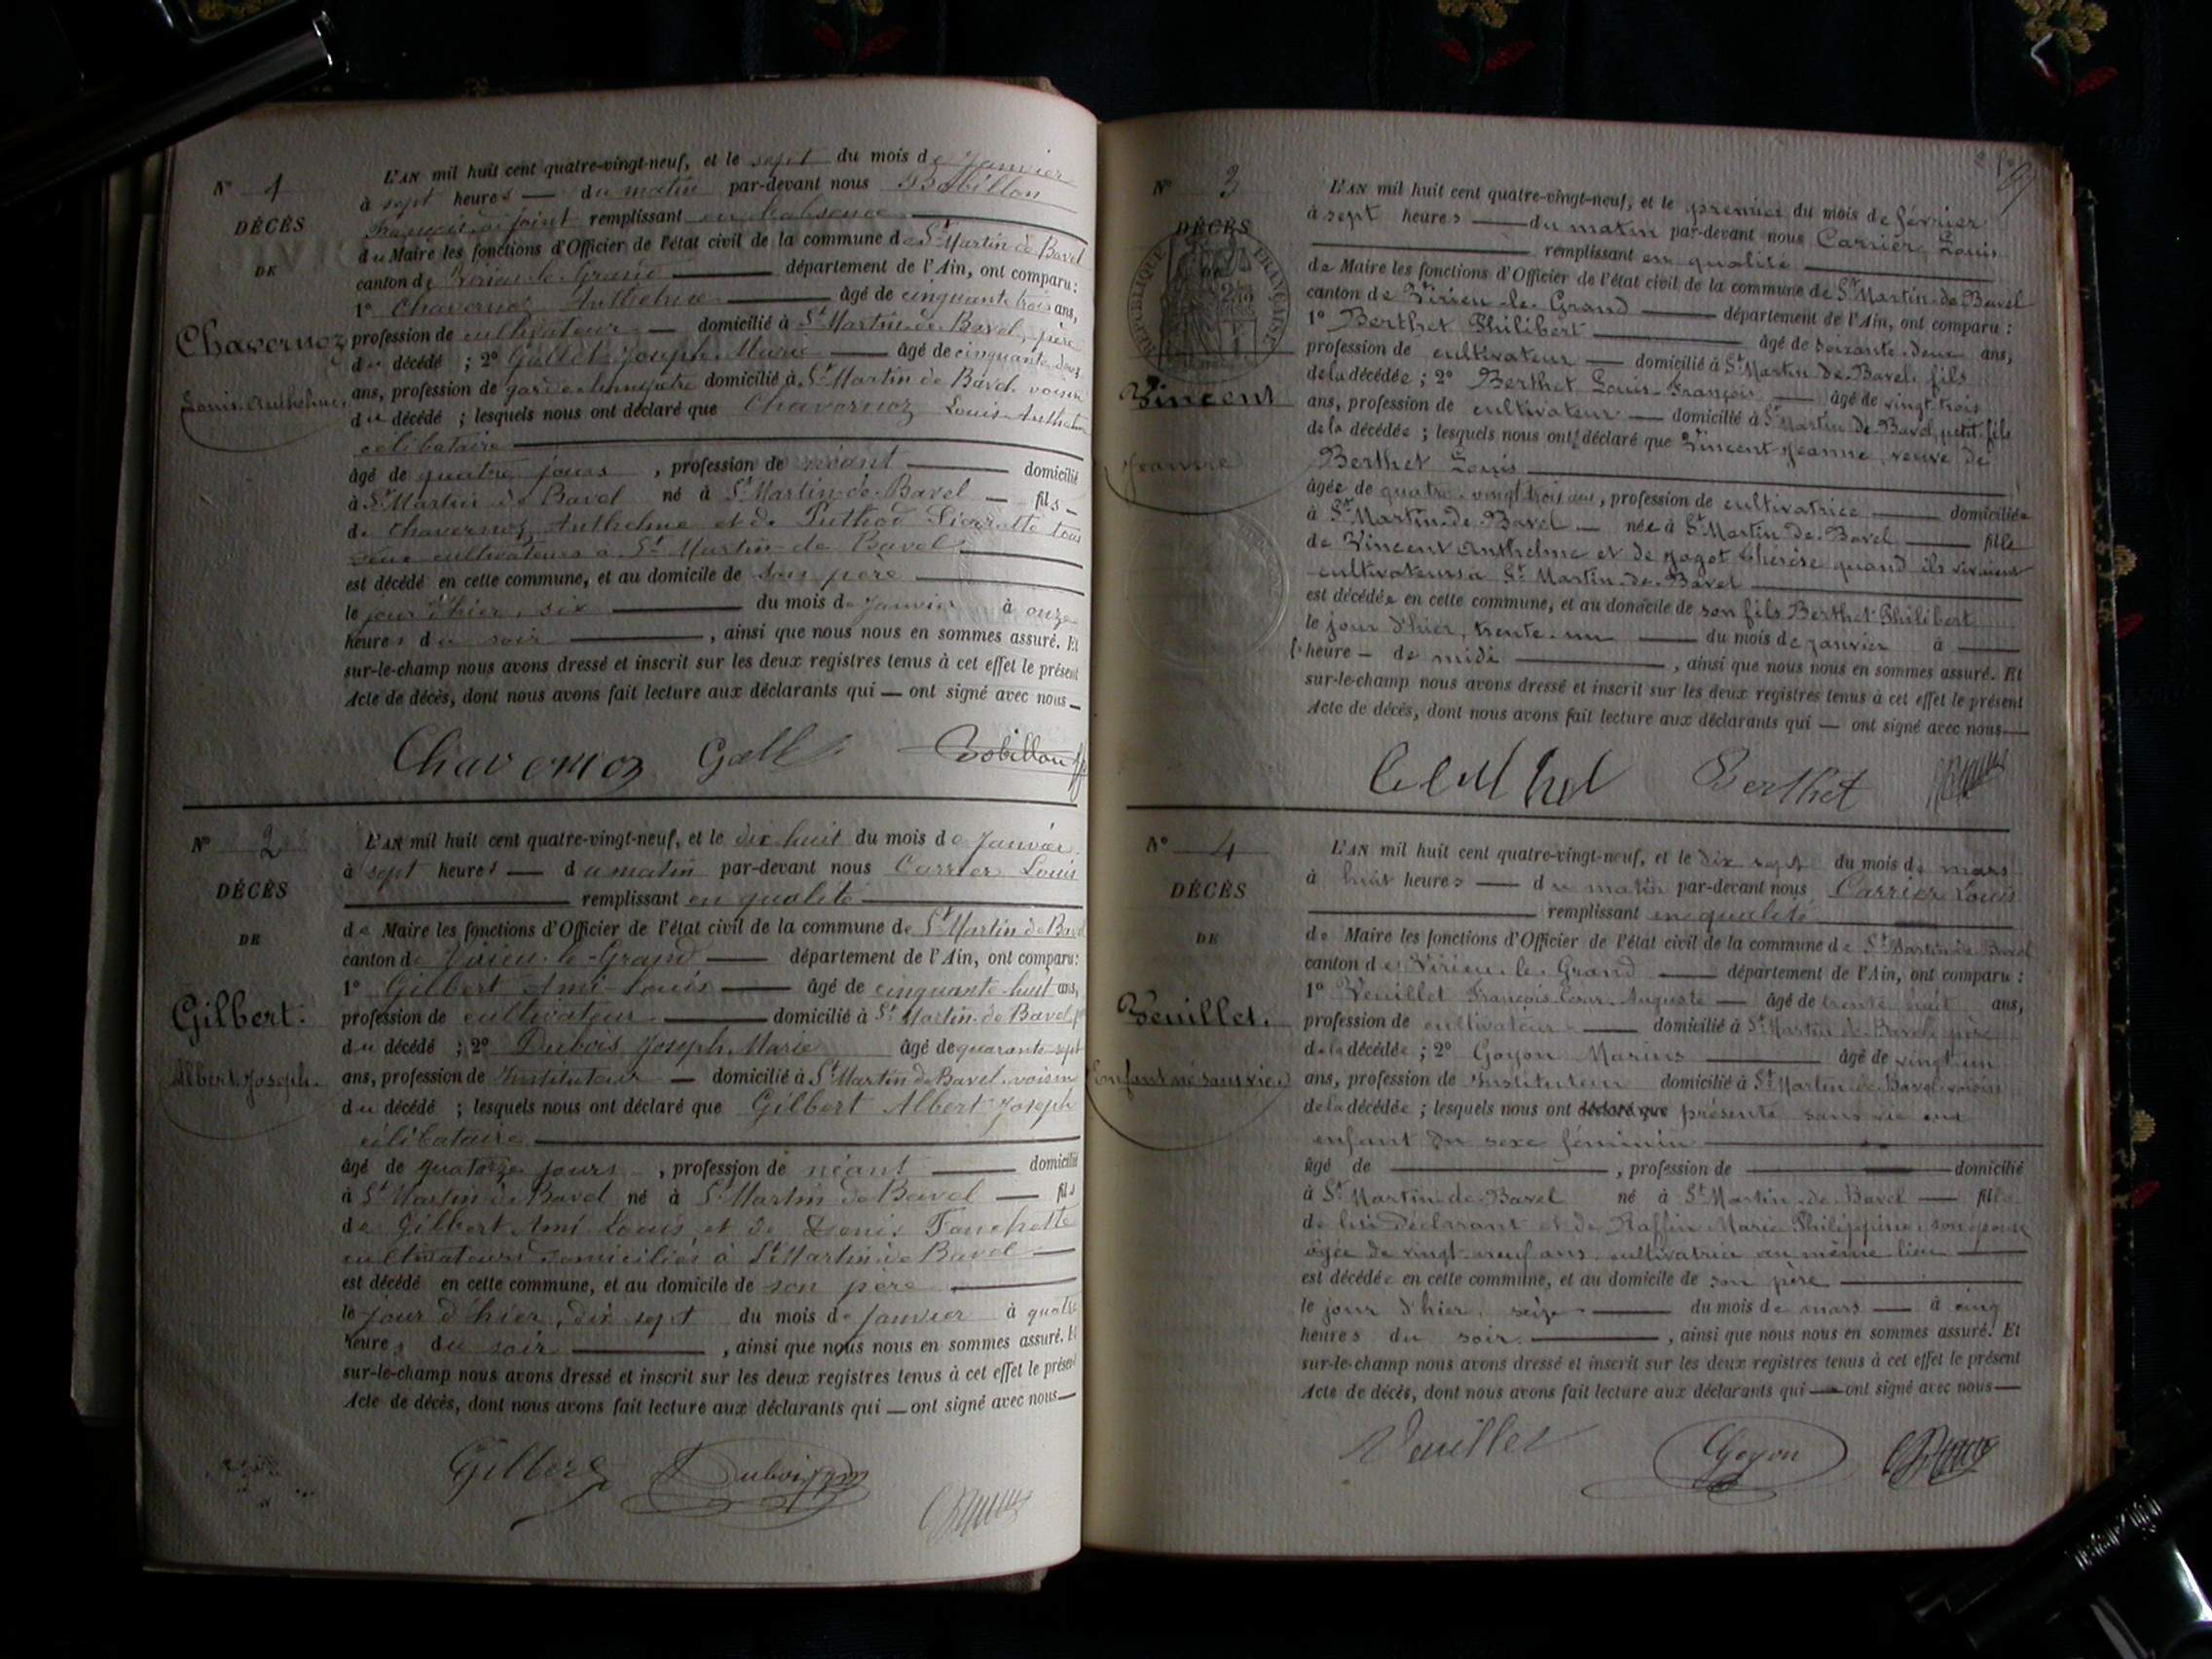 N° 1
DÉCÈS
DE
Chavornoz
Louis Anthelme.
L'AN mil huit cent quatre-vingt-neuf, et le sept du mois de Janvier
à sept heures — du matin par-devant nous Bobillon
François adjoint remplissant en l'absence
du Maire les fonctions d'Officier de l'état civil de la commune de St Martin de Bavel
canton de Virieu-le-Grand département de l'Ain, ont comparu :
1° Chavornoz Anthelme âgé de cinquante trois ans,
profession de cultivateur — domicilié à St Martin-de-Bavel, père
du décédé ; 2° Gallet Joseph Marie — âgé de cinquante deux
ans, profession de garde champêtre domicilié à St Martin de Bavel. voisin
du décédé ; lesquels nous ont déclaré que Chavornoz Louis-Anthelme
célibataire
âgé de quatre jours , profession de néant domicilié
à St Martin de Bavel né à St Martin-de-Bavel — fils
de Chavornoz Anthelme et de Puthod Pierrette tous
deux cultivateurs à St Martin-de Bavel
est décédé en cette commune, et au domicile de son père
le jour d'hier, six du mois de Janvier à onze
heures du soir , ainsi que nous nous en sommes assuré. Et
sur-le-champ nous avons dressé et inscrit sur les deux registres tenus à cet effet le présent
Acte de décès, dont nous avons fait lecture aux déclarants qui — ont signé avec nous
Chavornoz Gallet Bobillon
N° 2
DÉCÈS
DE
Gilbert.
Albert Joseph.
L'AN mil huit cent quatre-vingt-neuf, et le dix huit du mois de Janvier
à sept heures — du matin par-devant nous Carrier Louis
remplissant en qualité
de Maire les fonctions d'Officier de l'état civil de la commune de St Martin de Bavel
canton de Virieu-le-Grand département de l'Ain, ont comparu :
1° Gilbert Ami-Louis âgé de cinquante-huit ans,
profession de cultivateur domicilié à St Martin-de Bavel
du décédé ; 2° Dubois Joseph Marie âgé de quarante-sept
ans, profession de Instituteur — domicilié à St Martin de Bavel. voisin
du décédé ; lesquels nous ont déclaré que Gilbert Albert Joseph
célibataire
âgé de quatorze jours , profession de néant domicilié
à St Martin de Bavel né à St Martin de Bavel — fils
de Gilbert Ami Louis et de Fanchette
cultivateurs domiciliés à St Martin de Bavel
est décédé en cette commune, et au domicile de son père
le jour d'hier, dix sept du mois de Janvier à quatre
heures du soir , ainsi que nous nous en sommes assuré. Et
sur-le-champ nous avons dressé et inscrit sur les deux registres tenus à cet effet le présent
Acte de décès, dont nous avons fait lecture aux déclarants qui — ont signé avec nous
Gilbert Dubois
N° 3
DÉCÈS
RÉPUBLIQUE FRANÇAISE
Vincent
Jeanne
L'AN mil huit cent quatre-vingt-neuf, et le premier du mois de février
à sept heures — du matin par-devant nous Carrier Louis
remplissant en qualité
de Maire les fonctions d'Officier de l'état civil de la commune de St Martin-de-Bavel
canton de Virieu-le-Grand département de l'Ain, ont comparu :
1° Berthet Philibert âgé de soixante-deux ans,
profession de cultivateur — domicilié à St Martin-de-Bavel, fils
de la décédée ; 2° Berthet Louis-François — âgé de vingt-trois
ans, profession de cultivateur — domicilié à St Martin-de-Bavel petit-fils
de la décédée ; lesquels nous ont déclaré que Vincent Jeanne, veuve de
Berthet Louis
âgée de quatre-vingt trois ans, profession de cultivatrice domiciliée
à St Martin-de-Bavel — née à St Martin-de-Bavel fille
de Vincent Anthelme et de Jagot Thérèse quand ils vivaient
cultivateurs à St Martin-de-Bavel
est décédée en cette commune, et au domicile de son fils Berthet Philibert
le jour d'hier, trente-un du mois de janvier à
l'heure — de midi , ainsi que nous nous en sommes assuré. Et
sur-le-champ nous avons dressé et inscrit sur les deux registres tenus à cet effet le présent
Acte de décès, dont nous avons fait lecture aux déclarants qui — ont signé avec nous
Berthet Berthet
N° 4
DÉCÈS
DE
Veuillet.
Enfant né sans vie.
L'AN mil huit cent quatre-vingt-neuf, et le dix sept du mois de mars
à huit heures — du matin par-devant nous Carrier Louis
remplissant en qualité
de Maire les fonctions d'Officier de l'état civil de la commune de St Martin de Bavel
canton de Virieu-le-Grand département de l'Ain, ont comparu :
1° Veuillet François Auguste — âgé de trente huit ans,
profession de cultivateur domicilié à St Martin de Bavel, père
de la décédée ; 2° Goyon Marius âgé de vingt un
ans, profession de Instituteur domicilié à St Martin de Bavel voisin
de la décédée ; lesquels nous ont déclaré que présenté sans vie un
enfant du sexe féminin
âgé de , profession de domicilié
à St Martin-de-Bavel né à St Martin-de-Bavel — fille
de lui déclarant et de Raffin Marie Philippine, son épouse
âgée de vingt-neuf ans cultivatrice au même lieu
est décédée en cette commune, et au domicile de son père
le jour d'hier, seize du mois de mars — à cinq
heures du soir , ainsi que nous nous en sommes assuré. Et
sur-le-champ nous avons dressé et inscrit sur les deux registres tenus à cet effet le présent
Acte de décès, dont nous avons fait lecture aux déclarants qui — ont signé avec nous
Veuillet Goyon